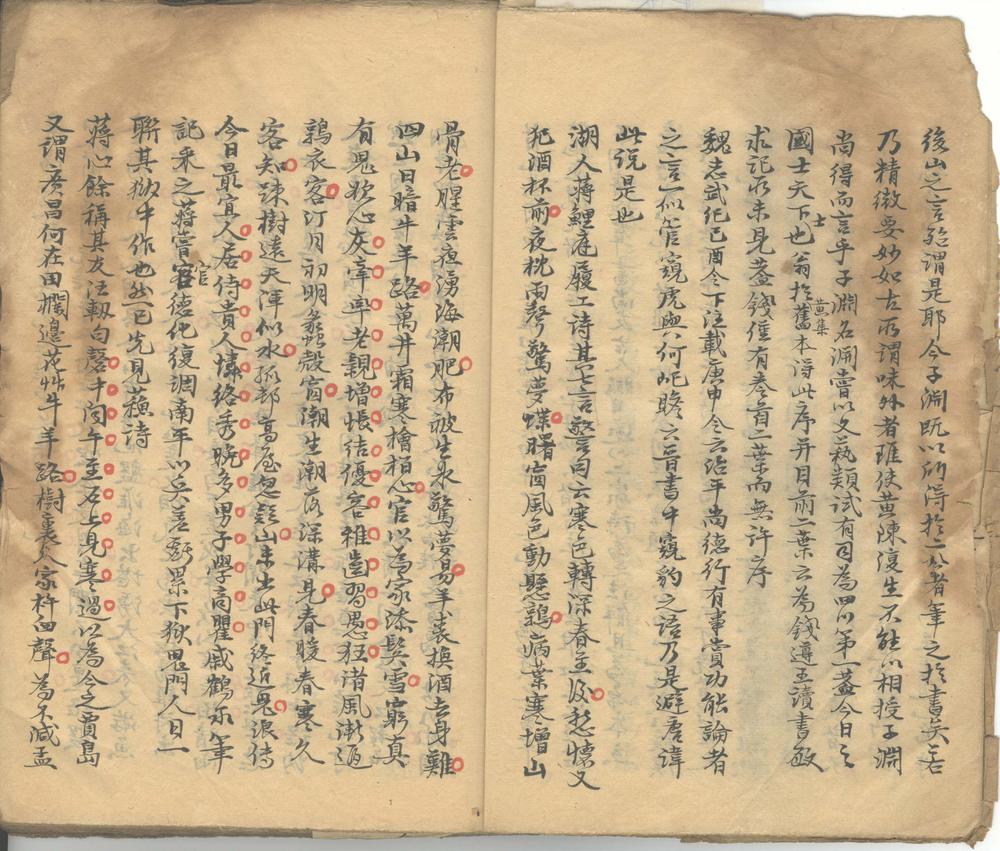 後山之言殆謂是耶今子淵既以所得於二公者筆之於書矣若
乃精微要妙如古所謂味外者雖使黃陳復生不能以相授子淵
尚得而言乎子淵名淵嘗以文藝類試有司為四川第一蓋今日之
國士天下士也翁於舊黃集本得此序并目前二葉云為錢遵王讀書敏
求記所未見蓋錢僅有卷首一葉而無許序
魏志武紀己酉令下注載庚申令云治平尚德行有事賞功能論者
之言一似管窺虎與何屺瞻云晉書中窺豹之語乃是避唐諱
此説是也
湖人蔣鯉庭履工詩其七言警句云寒色轉深春主愁懷又
犯酒杯前夜枕雨聲驚夢蝶曙窗風色動懸鶉病葉寒增山
骨老腥雲夜湧海潮肥布被生永驚夢易羊裘換酒去身難
四山日暗牛羊路萬井霜寒檜柏心官以為家漆鬢雪窮真
有鬼狄心灰宰卑老親增悵結優客雜齒習愚狂渚風漸逼
鶉衣客汀月初明蠡殼窗潮生潮落深溝見春暖春寒久
客知疎樹遠天渾似水孤邨高屋忽疑山未出此門終近鬼浪傳
今日最宜人居侍貴人情終秀晚多男子學商瞿戚鶴泉筆
記采之蔣嘗客官德化復調南平以吳善虧累下獄鬼門人日一
聯其獄中作也然一已先見穐詩
蔣心餘稱其友汪軔句磬中聞午至石上見寒過以為今之賈島
又謂廣昌何在田欄邊花草牛羊路樹裏人家杵臼聲為不減孟